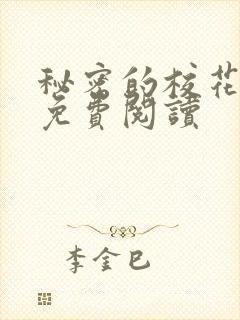 秘密的校花
免費閱讀
李金巳